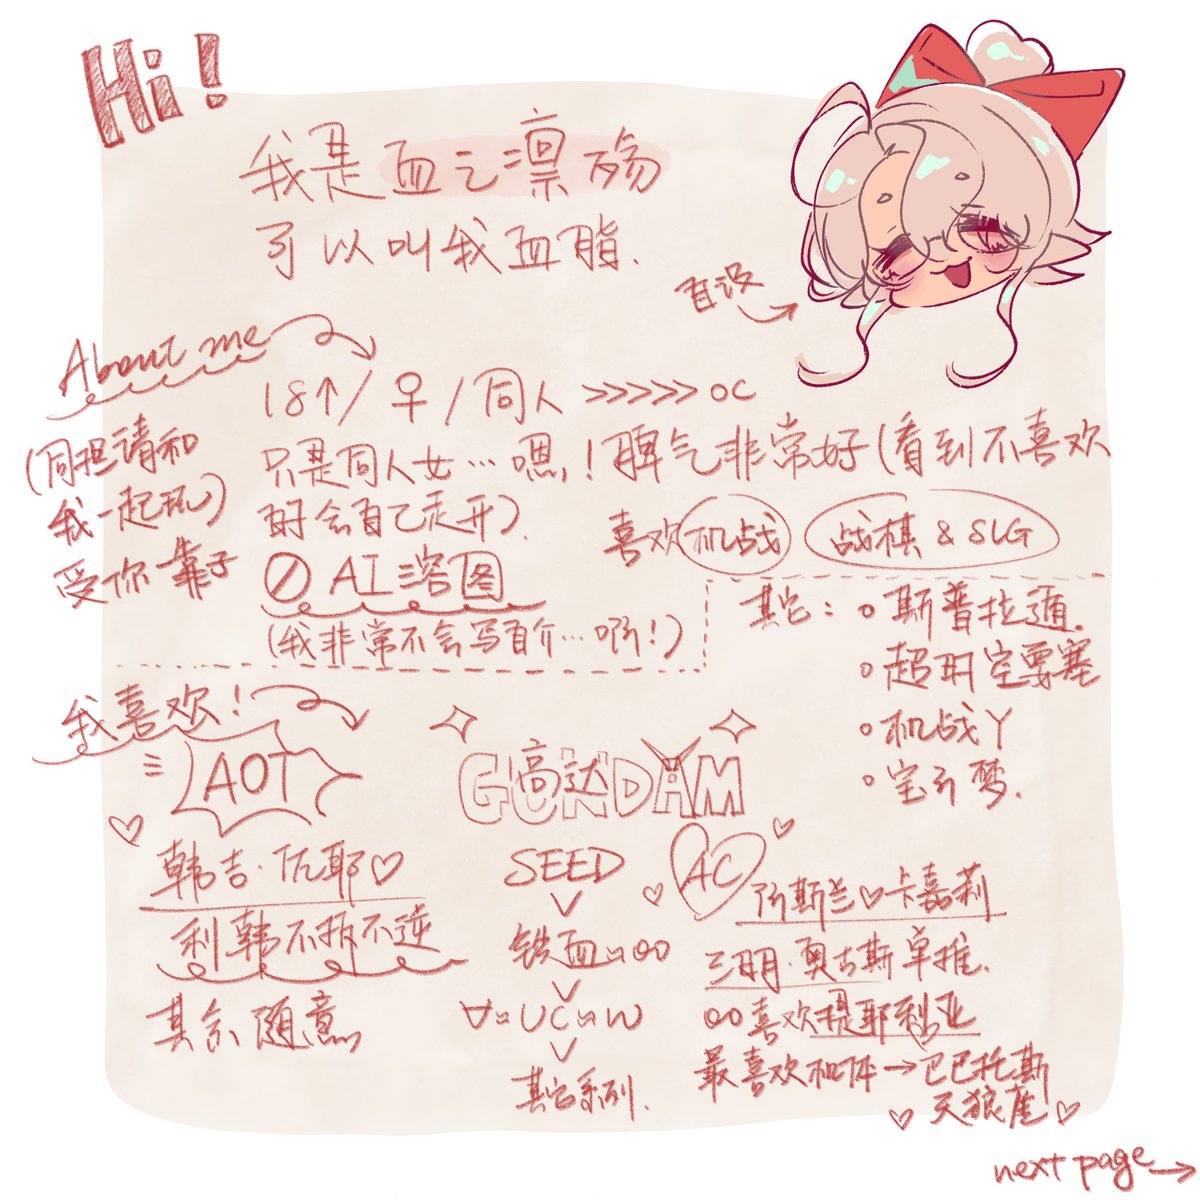 Hi!
我是血之凛殇
可以叫我血脂.
自设
About me
18↑/♀/同人>>>>>>oc
(同担请和我一起玩)
爱你靠子
只是同人女…嗯,!脾气非常好(看到不喜欢
的会自己走开).
喜欢 机战 战棋&SLG
AI溶图
(我非常不会写自介…啊!)
其它:
斯普拉遁.
超时空要塞
机战Y
宝可梦.
我喜欢!
AOT
韩吉·佐耶♡
利韩不拆不逆
其余随意
GUNDAM
高达
SEED
铁血≈00
∀≈UC≈W
其它系列.
AC
阿斯兰♡卡嘉莉
三日月·奥古斯单推.
00喜欢提耶利亚
最喜欢机体→巴巴托斯
天狼座
next page→